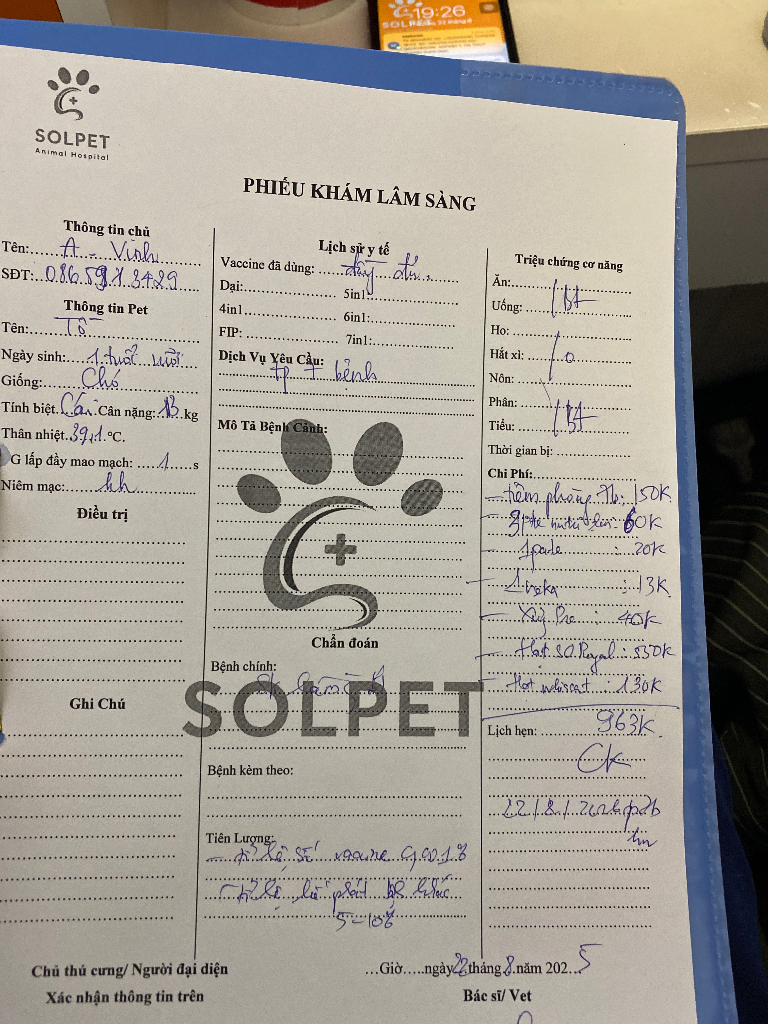 19:26
SOLPET
SOLPET
Animal Hospital
PHIẾU KHÁM LÂM SÀNG
Thông tin chủ
Tên: A - Vinh
SĐT: 086.5913429
Thông tin Pet
Tên: Tô
Ngày sinh: 1 tuổi rưỡi
Giống: Chó
Tính biệt. Cái Cân nặng: 13 kg
Thân nhiệt. 39,1 °C.
G lấp đầy mao mạch: 1 s
Niêm mạc: hh
Điều trị
Ghi Chú
Lịch sử y tế
Vaccine đã dùng: đầy đủ
Dại: 5in1:
4in1 6in1:
FIP: 7in1:
Dịch Vụ Yêu Cầu:
tp + bệnh
Mô Tả Bệnh Cảnh:
Chẩn đoán
Bệnh chính:
SOLPET
Bệnh kèm theo:
Tiên Lượng:
- tỉ lệ số vaccine 0,001%
- tỉ lệ phát bệnh khác
5-10%
Triệu chứng cơ năng
Ăn:
Uống: BT
Ho:
Hắt xì: 0
Nôn:
Phân:
Tiểu: BT
Thời gian bị:
Chi Phí:
- tiêm phòng : 150K
60K
- 1 pate : 20K
- 1 : 13K
- : 40K
- Hạt Royal : 550K
- Hạt : 130K
963K
Lịch hẹn:
CK
22/8/
Chủ thú cưng/ Người đại diện
Xác nhận thông tin trên
...Giờ.....ngày 22 tháng 8 .năm 202...5
Bác sĩ/ Vet